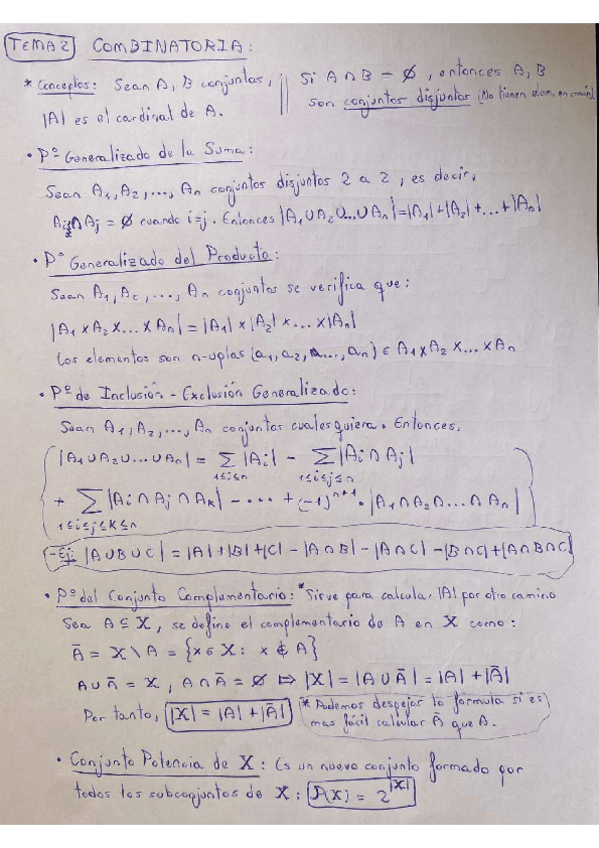 TEMA 2 COMBINATORIA:
* Conceptos: Sean A, B conjuntos, || Si A ∩ B = ∅, entonces A, B
|A| es el cardinal de A. || son conjuntos disjuntos (No tienen elem. en común)
• Pº Generalizado de la Suma:
Sean A₁, A₂, ..., Aₙ conjuntos disjuntos 2 a 2, es decir,
Aᵢ ∩ Aⱼ = ∅ cuando i=j. Entonces |A₁ ∪ A₂ ∪ ... ∪ Aₙ| = |A₁| + |A₂| + ... + |Aₙ|
• Pº Generalizado del Producto:
Sean A₁, A₂, ..., Aₙ conjuntos se verifica que:
|A₁ x A₂ x ... x Aₙ| = |A₁| x |A₂| x ... x |Aₙ|
Los elementos son n-uplas (a₁, a₂, ..., aₙ) ∈ A₁ x A₂ x ... x Aₙ
• Pº de Inclusión - Exclusión Generalizado:
Sean A₁, A₂, ..., Aₙ conjuntos cualesquiera. Entonces,
|A₁ ∪ A₂ ∪ ... ∪ Aₙ| = Σ |Aᵢ| - Σ |Aᵢ ∩ Aⱼ|
1≤i≤n 1≤i≤j≤n
+ Σ |Aᵢ ∩ Aⱼ ∩ Aₖ| - ... + (-1)ⁿ⁺¹ · |A₁ ∩ A₂ ∩ ... ∩ Aₙ|
1≤i≤j≤k≤n
- Ej: |A∪B∪C| = |A| + |B| + |C| - |A∩B| - |A∩C| - |B∩C| + |A∩B∩C|
• Pº del Conjunto Complementario: * Sirve para calcular |A| por otro camino
Sea A ⊆ X, se define el complementario de A en X como:
Ā = X \ A = {x ∈ X : x ∉ A}
A ∪ Ā = X, A ∩ Ā = ∅ ⇨ |X| = |A ∪ Ā| = |A| + |Ā|
Por tanto, |X| = |A| + |Ā| * Podemos despejar la fórmula si es
mas fácil calcular Ā que A.
• Conjunto Potencia de X: Es un nuevo conjunto formado por
todos los subconjuntos de X: P(X) = 2^|X|